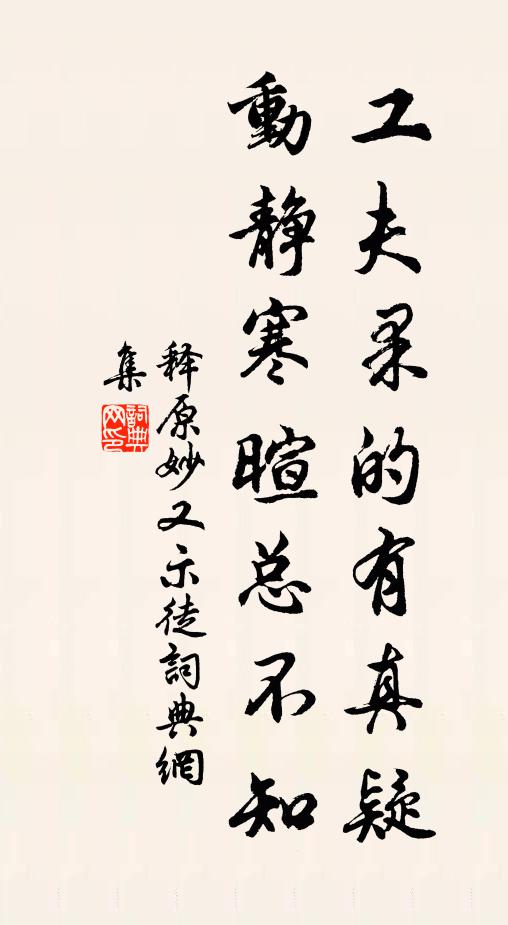 工夫果的有真疑
動静寒暄总不知
释原妙又示徒詞典網
集
詞典網印